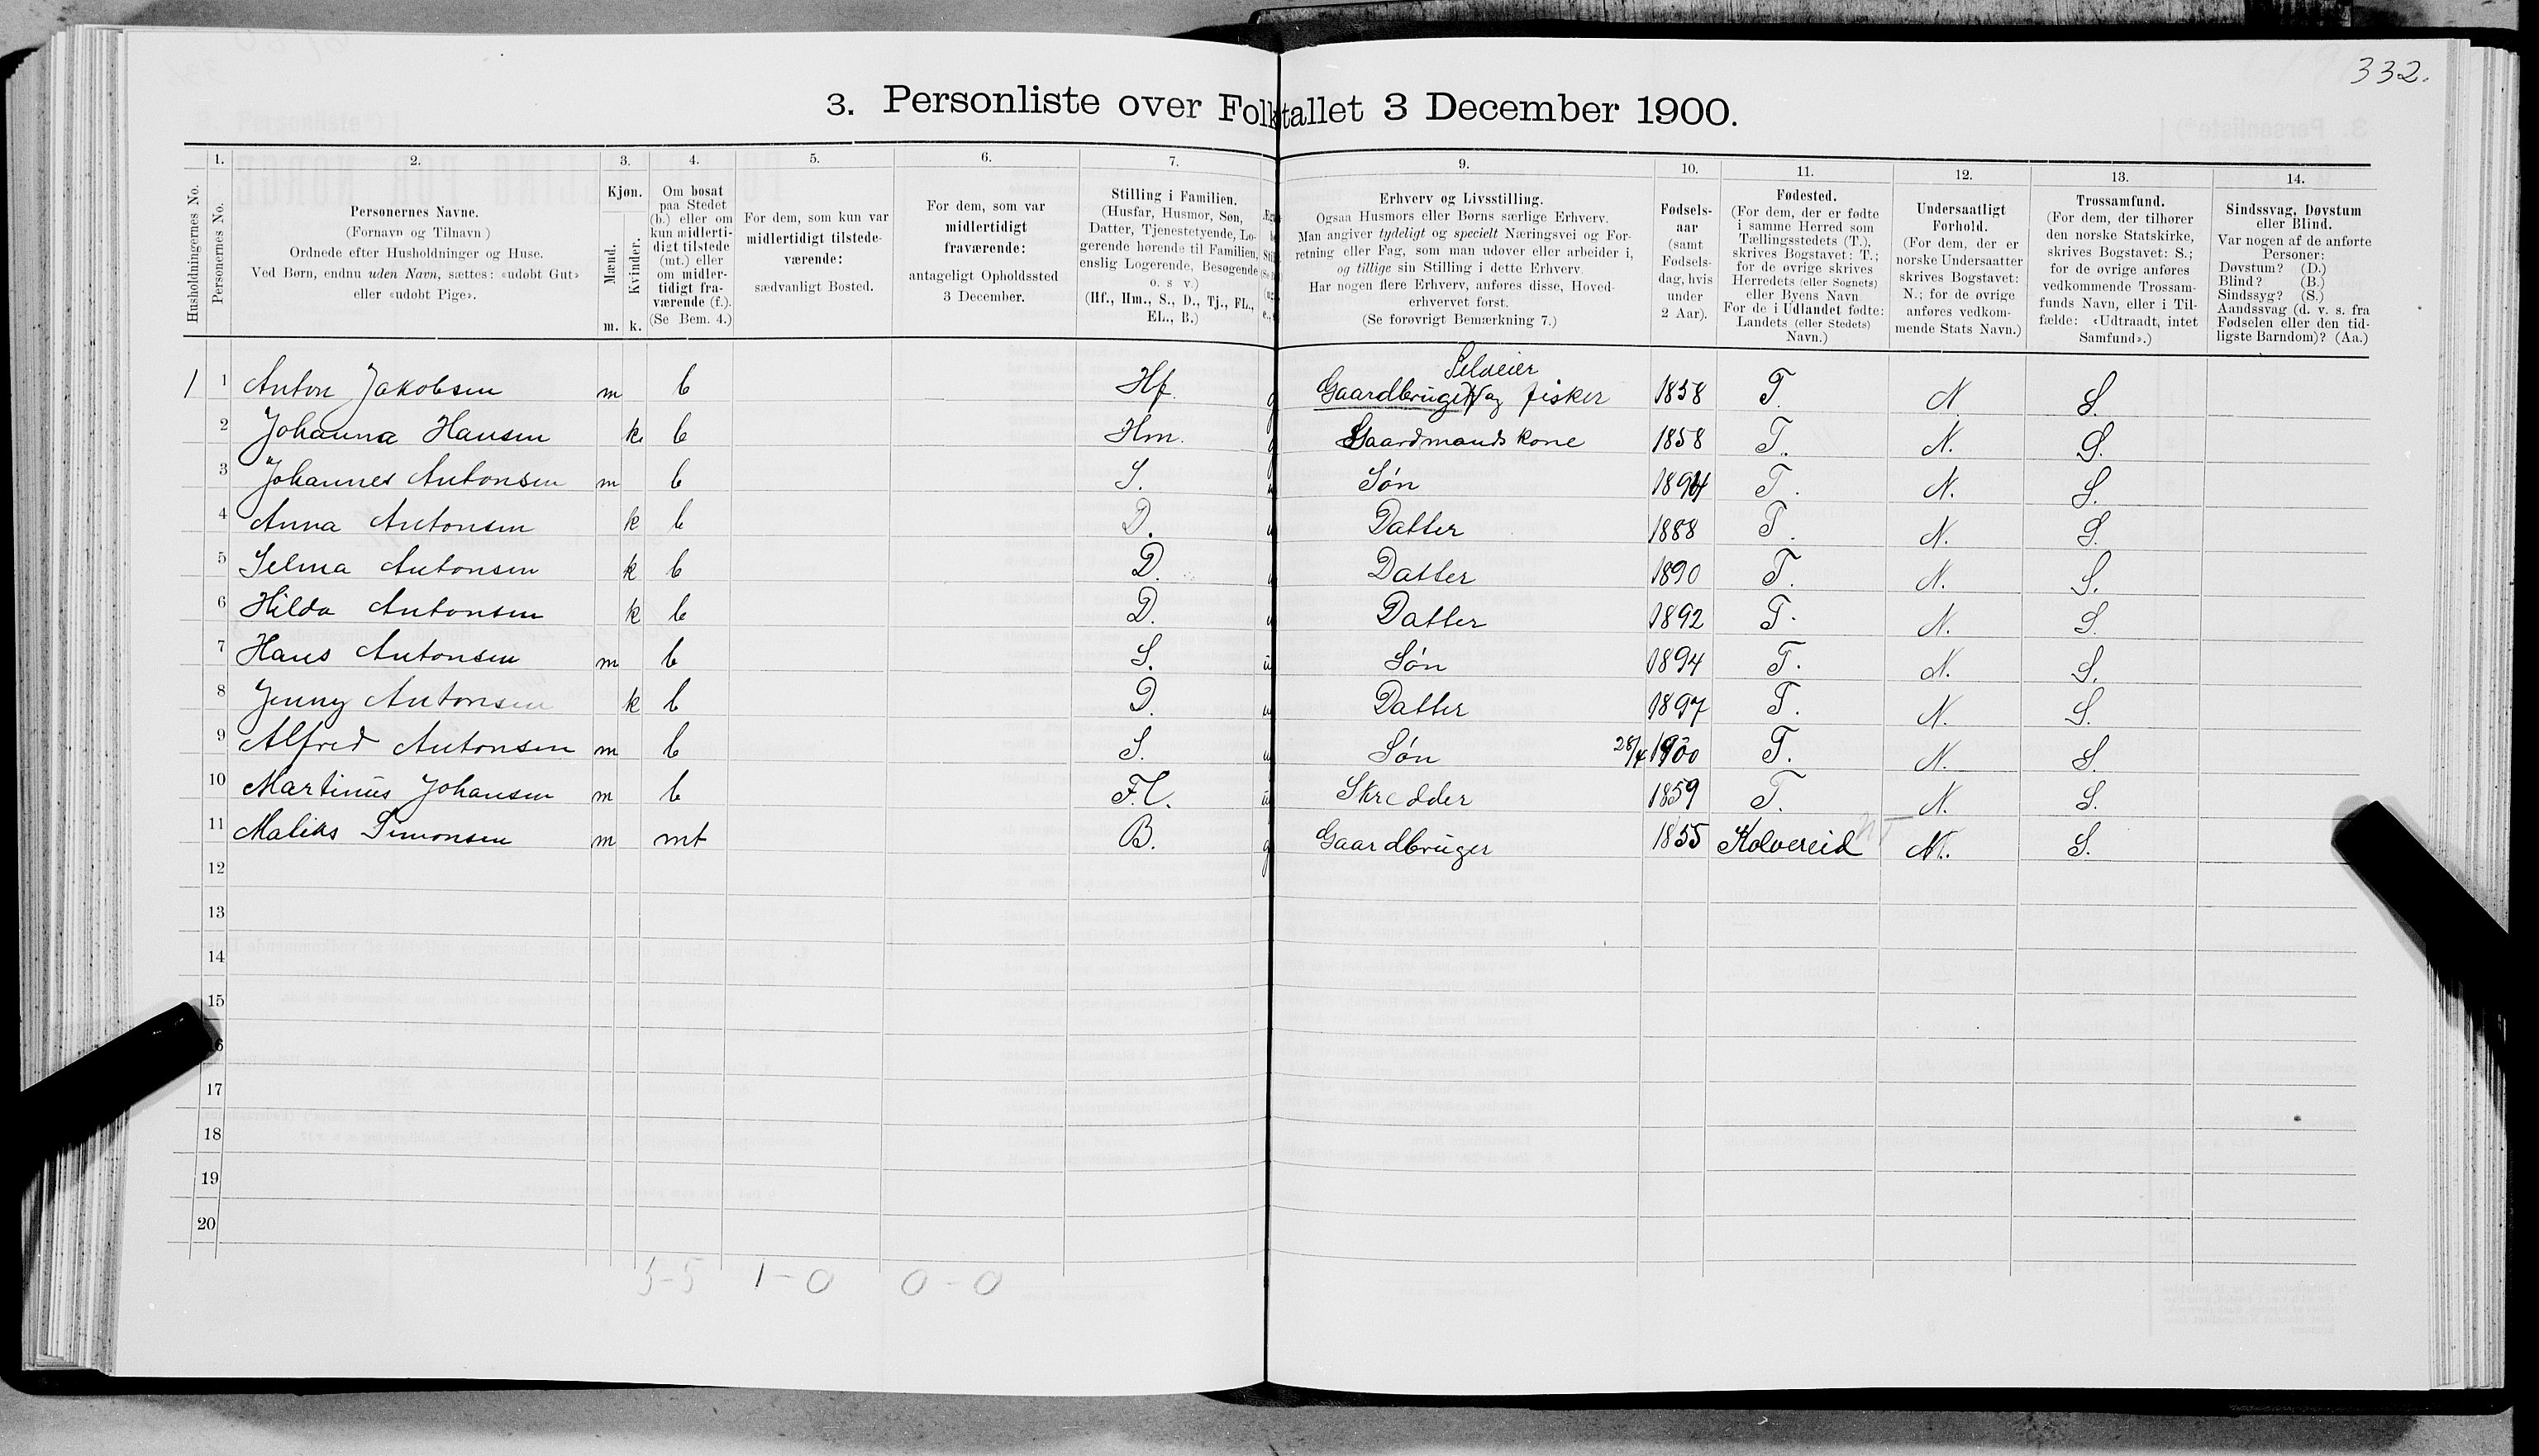 332.
3. Personliste over Folketallet 3 December 1900.
1. 2. 3. 4. 5. 6. 7. 9. 10. 11. 12. 13. 14.
Husholdningernes No.
Personernes No.
Personernes Navne.
(Fornavn og Tilnavn)
Ordnede efter Husholdninger og Huse.
Ved Børn, endnu uden Navn, sættes: «udøbt Gut»
eller «udøbt Pige».
Kjøn.
Mænd.
Kvinder.
m. k.
Om bosat
paa Stedet
(b.) eller om
kun midlerti-
digt tilstede
(mt.) eller
om midler-
tidigt fra-
værende (f.).
(Se Bem. 4.)
For dem, som kun var
midlertidigt tilstede-
værende:
sædvanligt Bosted.
For dem, som var
midlertidigt
fraværende:
antageligt Opholdssted
3 December.
Stilling i Familien.
(Husfar, Husmor, Søn,
Datter, Tjenestetyende, Lo-
gerende hørende til Familien,
enslig Logerende, Besøgende
o. s v.)
(Hf., Hm., S., D., Tj., FL.,
EL., B.)
Erhverv og Livsstilling.
Ogsaa Husmors eller Børns særlige Erhverv.
Man angiver tydeligt og specielt Næringsvei og For-
retning eller Fag, som man udøver eller arbeider i,
og tillige sin Stilling i dette Erhverv.
Har nogen flere Erhverv, anføres disse, Hoved-
erhvervet først.
(Se forøvrigt Bemærkning 7.)
Fødsels-
aar
(samt
Fødsels-
dag, hvis
under
2 Aar).
Fødested.
(For dem, der er fødte
i samme Herred som
Tællingsstedets (T.),
skrives Bogstavet: T.;
for de øvrige skrives
Herredets (eller Sognets)
eller Byens Navn
For de i Udlandet fødte:
Landets (eller Stedets)
Navn.)
Undersaatligt
Forhold.
(For dem, der er
norske Undersaatter
skrives Bogstavet:
N.; for de øvrige
anføres vedkom-
mende Stats Navn.)
Trossamfund.
(For dem, der tilhører
den norske Statskirke,
skrives Bogstavet: S.;
for de øvrige anføres
vedkommende Trossam-
funds Navn, eller i Til-
fælde: «Udtraadt, intet
Samfund».)
Sindssvag, Døvstum
eller Blind.
Var nogen af de anførte
Personer:
Døvstum? (D.)
Blind? (B.)
Sindssyg? (S.)
Aandssvag (d. v. s. fra
Fødselen eller den tid-
ligste Barndom)? (Aa.)
Selveier
1 1 Anton Jakobsen m b Hf. g Gaardbruger og fisker 1858 T. N. S.
2 Johanna Hansen k. b Hm. g Gaardmandskone 1858 T. N. S.
3 Johannes Antonsen m b S. u Søn T. N. S.
4 Anna Antonsen k b D. u Datter 1888 T. N. S.
5 Selma Antonsen k b D. u Datter 1890 T. N. S.
6 Hilda Antonsen k b D. u Datter 1892 T. N. S.
7 Hans Antonsen m b S. u Søn 1894 T. N. S.
8 Jenny Antonsen k b D. u Datter 1897 T. N. S.
9 Alfred Antonsen m b S. u Søn 28/4 1900 T. N. S.
10 Martinus Johansen m b F.L. u Skredder 1859 T. N. S.
11 Maliks Simonsen m mt B. g Gaardbruger 1855 Kolvereid NT N. S.
12
13
14
15
16
17
18
19
20
5-5 1-0 0-0